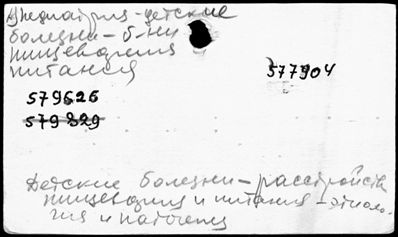 Педиатрия-детские
болезни-б-ни
пищеварения
питания
577904
579626
579829
Детские болезни-расстройств
пищеварения и питания-этиоло-
гия и патогенез